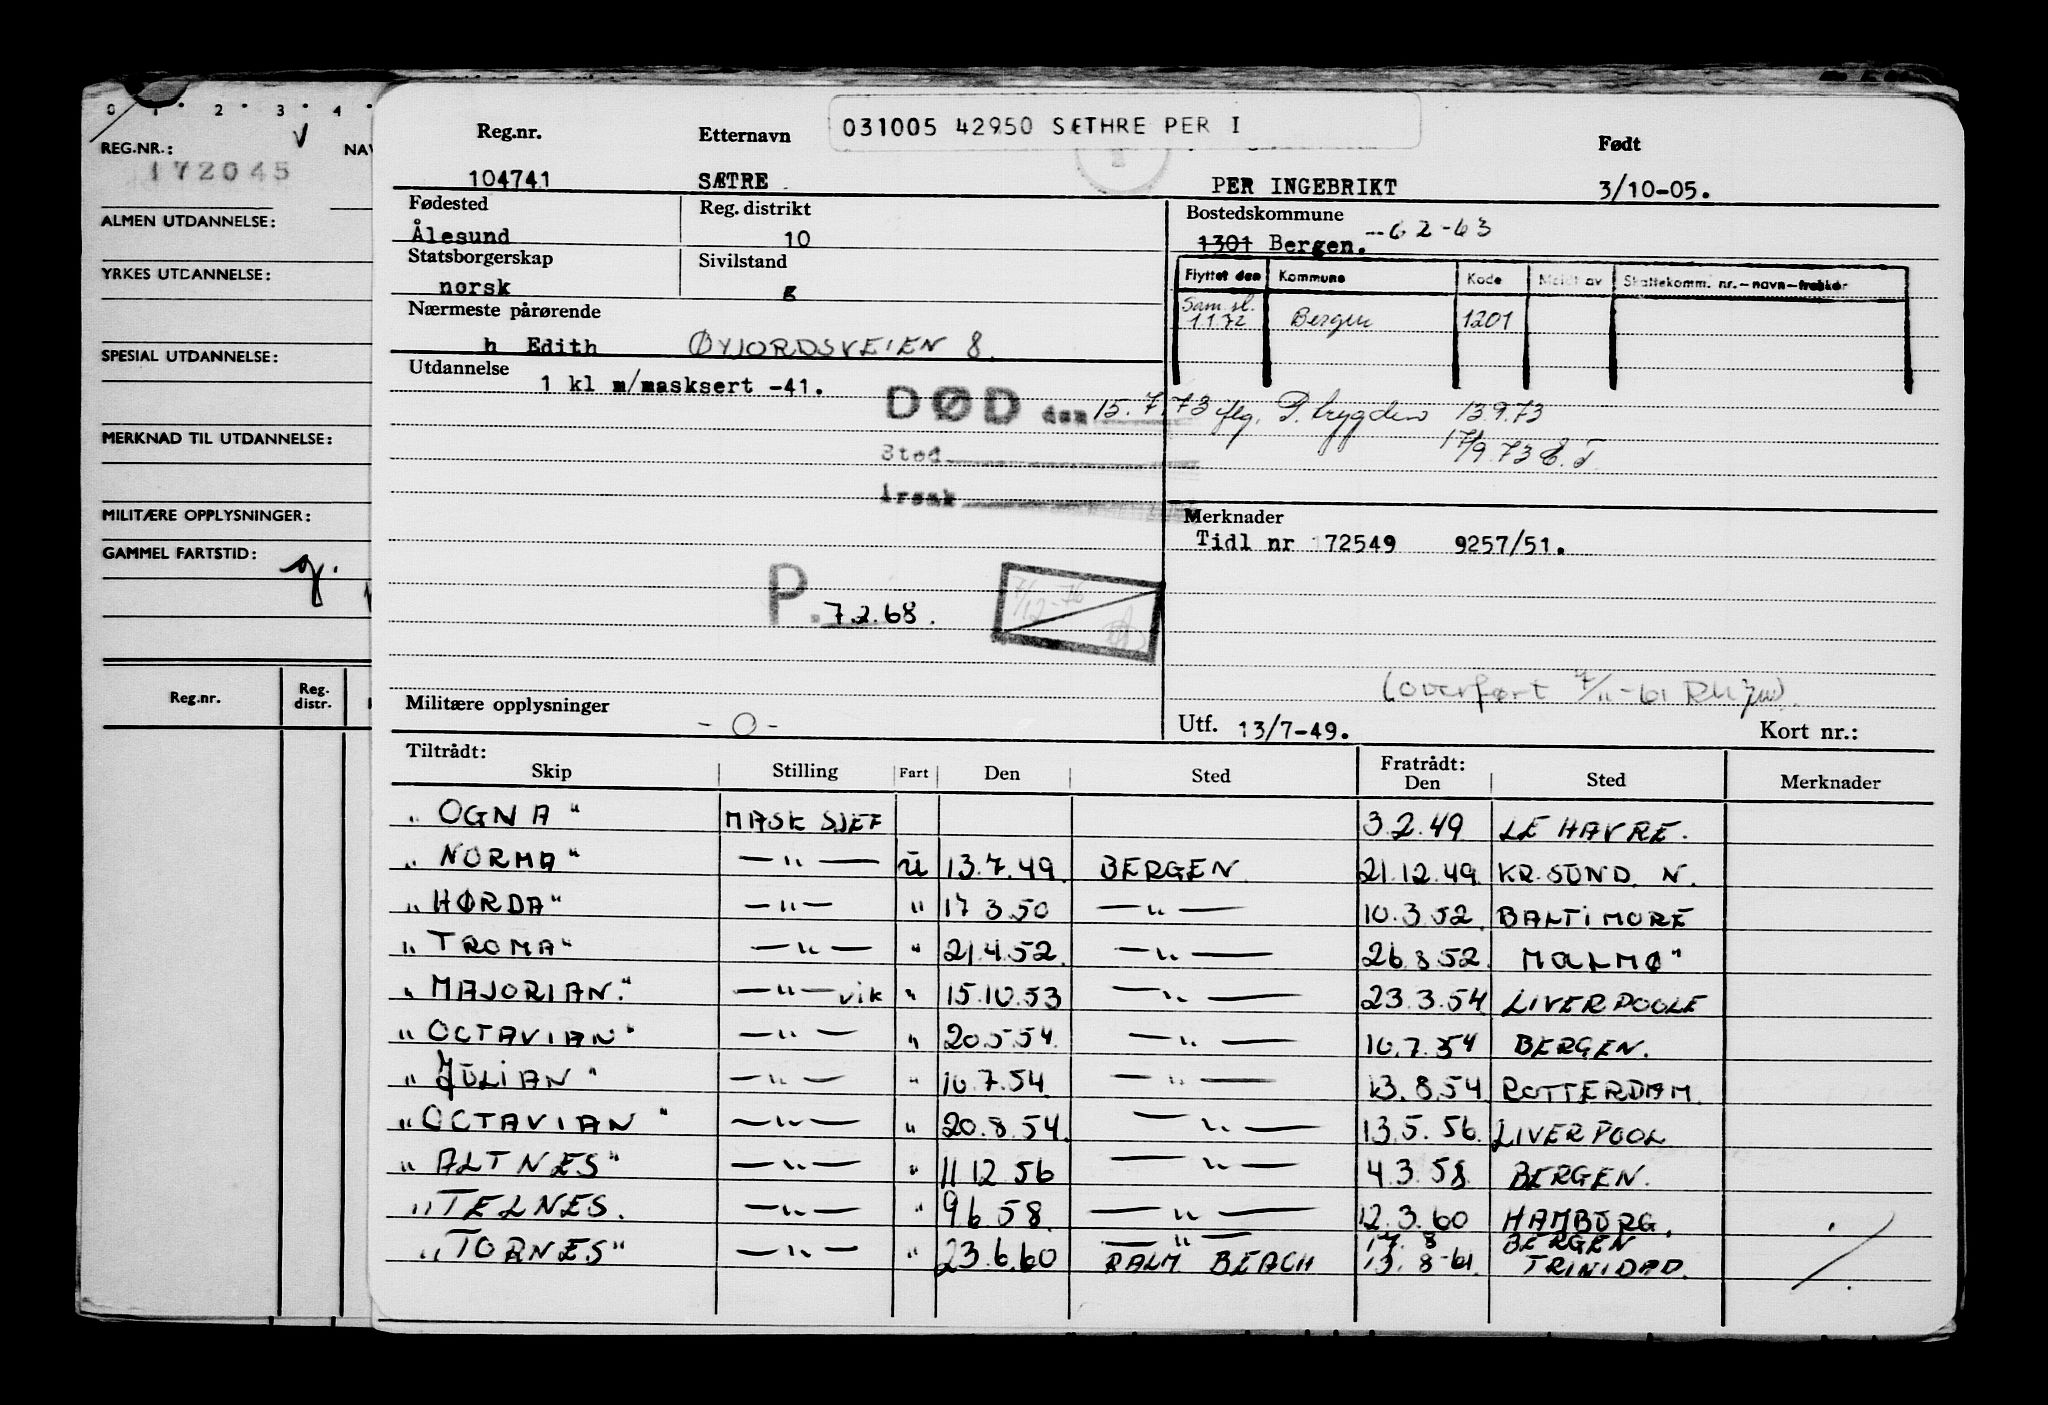 0 1 2 3 4
REG.NR.: V NAV
172045
ALMEN UTDANNELSE:
YRKES UTDANNELSE:
SPESIAL UTDANNELSE:
MERKNAD TIL UTDANNELSE:
MILITÆRE OPPLYSNINGER:
GAMMEL FARTSTID:
Reg.nr. Reg. distr.
031005 42950 SÆTHRE PER I
Reg.nr. Etternavn Født
104741 SÆTRE PER INGEBRIKT 3/10-05.
Fødested Reg. distrikt Bostedskommune
Ålesund 10 1301 Bergen. --62-63
Statsborgerskap Sivilstand
norsk g
Flyttet den Kommune Kode Meldt av Skattekomm. nr.-navn-trekker
Sam.sl. 1.1.72 Bergen 1201
Nærmeste pårørende
h Edith ØYJORDSVEIEN 8.
Utdannelse
1 kl m/masksert -41.
DØD den 15.7.73 flg. P. trygden 13.9.73
17/9.73 E.T.
Sted
Årsak
Merknader
Tidl nr 172549 9257/51.
P. 7.2.68.
7/12-76
(overført 7/11-61
Militære opplysninger
- 0 -
Utf. 13/7-49. Kort nr.:
Tiltrådt: Fratrådt:
Skip Stilling Fart Den Sted Den Sted Merknader
" OGNA " MASK SJEF 3.2.49 LE HAVRE.
" NORMA " — " — U 13.7.49. BERGEN 21.12.49. KR.SUND. N.
" HØRDA " — " — " 17 3.50 — " — 10.3.52. BALTIMORE
" TROMA " — " — " 21.4.52. — " — 26.8.52. MALMØ "
" MAJORIAN. " — " — vik " 15.10.53 — " — 23.3.54 LIVERPOOLE
" OCTAVIAN " — " — " 20.5.54. — " — 10.7.54 BERGEN.
" JULIAN " — " — " 10.7.54. — " — 13.8.54. ROTTERDAM.
" OCTAVIAN " — " — " 20.8.54. — " — 13.5.56. LIVERPOOL
" ALTNES " — " — " 11 12 56 — " — 4.3.58. BERGEN.
" TELNES. — " — " 9 6.58. — " — 12.3.60 HAMBURG.
" TORNES " — " — " 23.6.60 — " — 17. 8 BERGEN
PALM BEACH 13. 8-61. TRINIDAD.